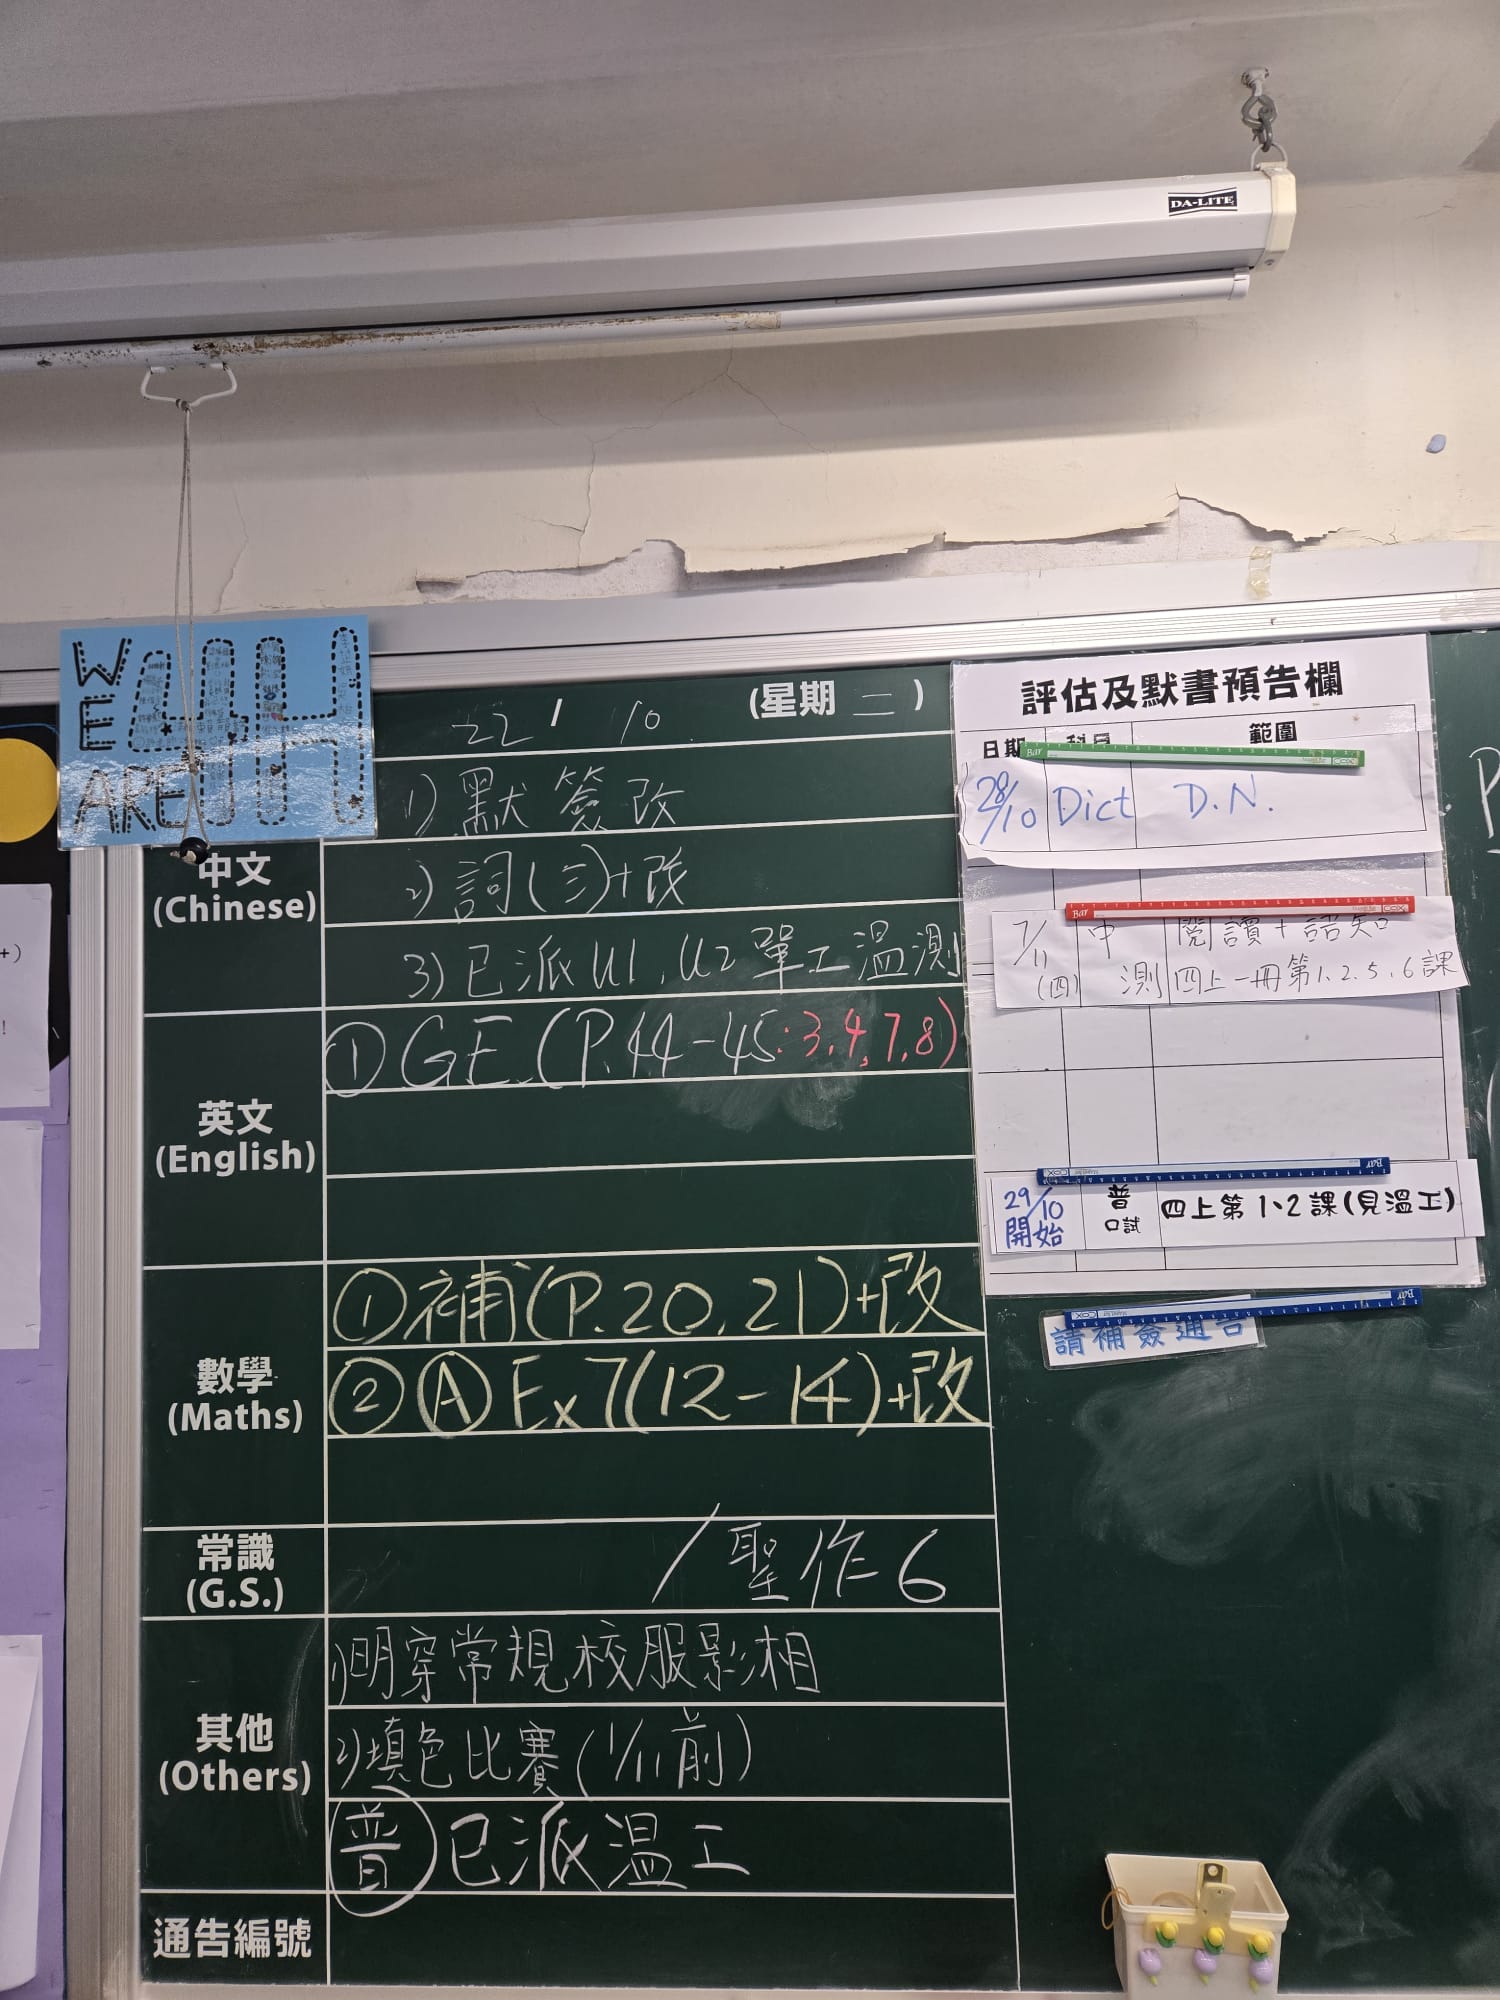 DA-LITE
WE
ARE
4H
22 / 10 (星期 二 )
中文
(Chinese)
1) 默簽改
2) 詞(三)+改
3) 已派U1, U2單工溫測
英文
(English)
① GE (P.44-45:3,4,7,8)
數學
(Maths)
① 補(P.20,21)+改
② Ⓐ Ex 7(12-14)+改
常識
(G.S.)
/ 聖作6
其他
(Others)
1)明穿常規校服影相
2)填色比賽(1/11前)
普 已派溫工
通告編號
評估及默書預告欄
日期 科目 範圍
28/10 Dict D.N.
7/11 (四) 中測 閱讀+語知
四上一冊第1.2.5.6課
29/10 開始 普 口試 四上第1、2課(見溫工)
請補簽通告